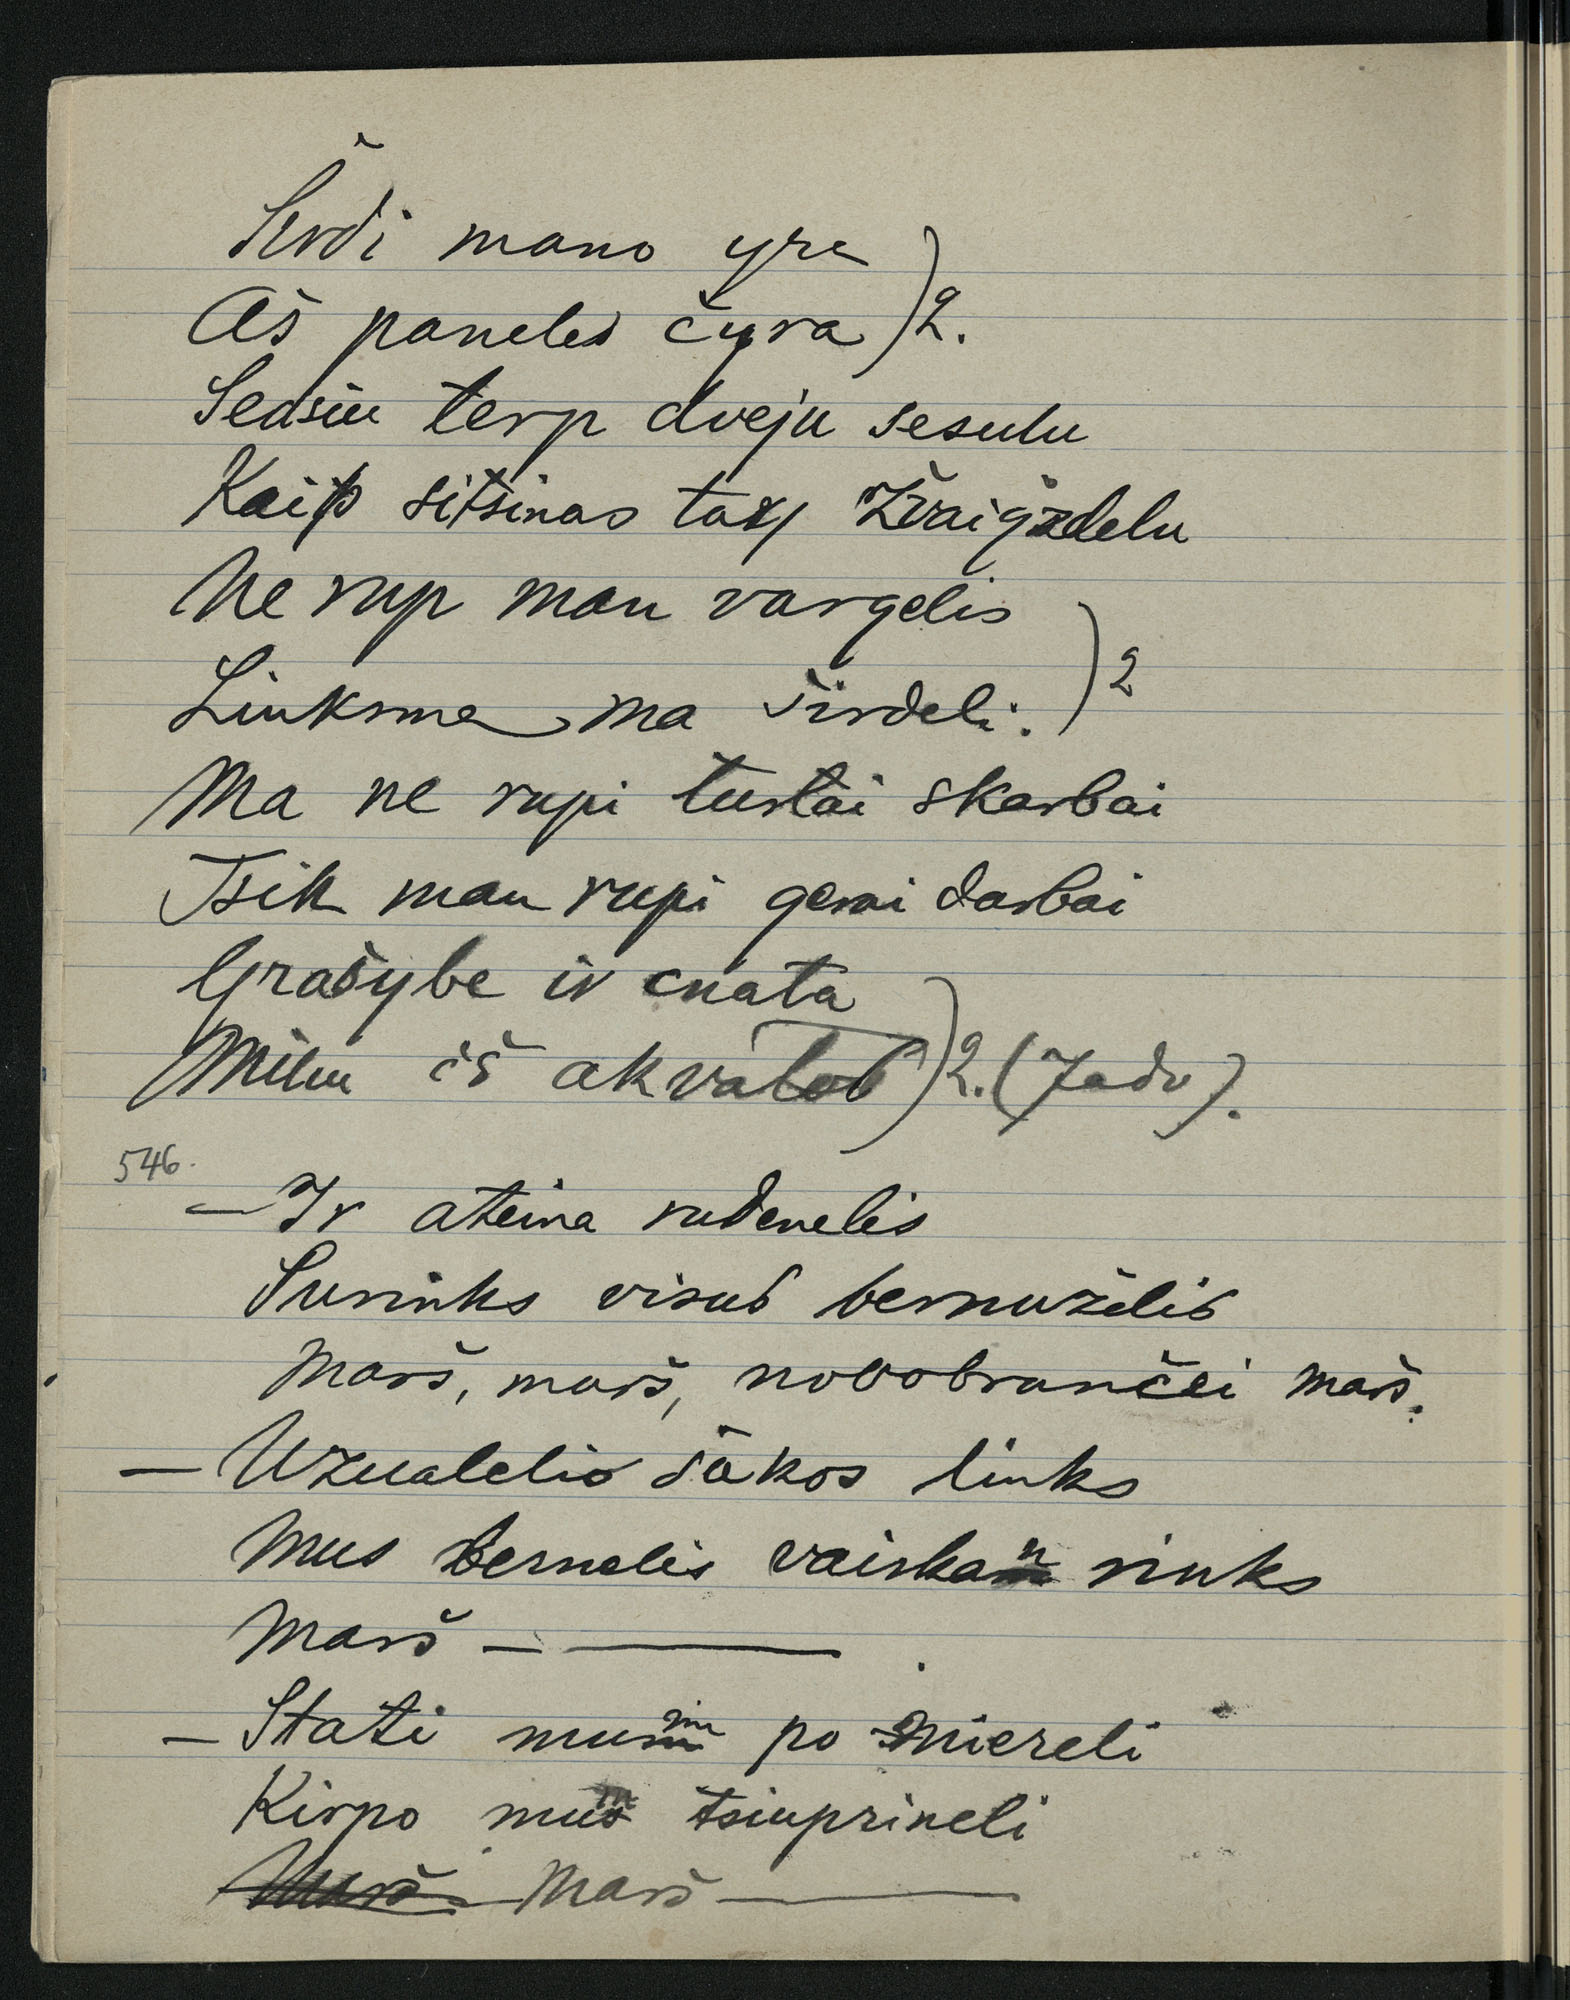 Širdi mano yra
Aš panelės čyra )2.
Sėdsiu terp dveju sesulu
Kaip sitsinas tarp Žvaigždelu
Ne rup man vargelis
Linksma ma širdeli. )2
Ma ne rupi turtai skarbai
Tsik man rupi gerai darbai
Gražybe ir cnata
Miliu iš akvatos )2. (Jadv).
546.
— Ir ateina rudenelis
Surinks visus bernuželis
Marš, marš, novobrančei marš.
— Užualelio šakos links
Mus bernelis vaiskan rinks
Marš — —
— Stati mum po miereli
Kirpo mum tsiuprineli
Marš Marš —